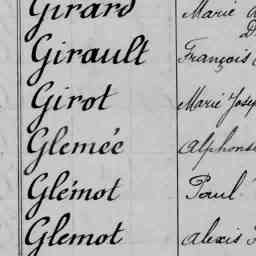 Girard Marie
Girault François
Girot Marie Josep
Glemée Alphons
Glémot Paul
Glemot Alexis